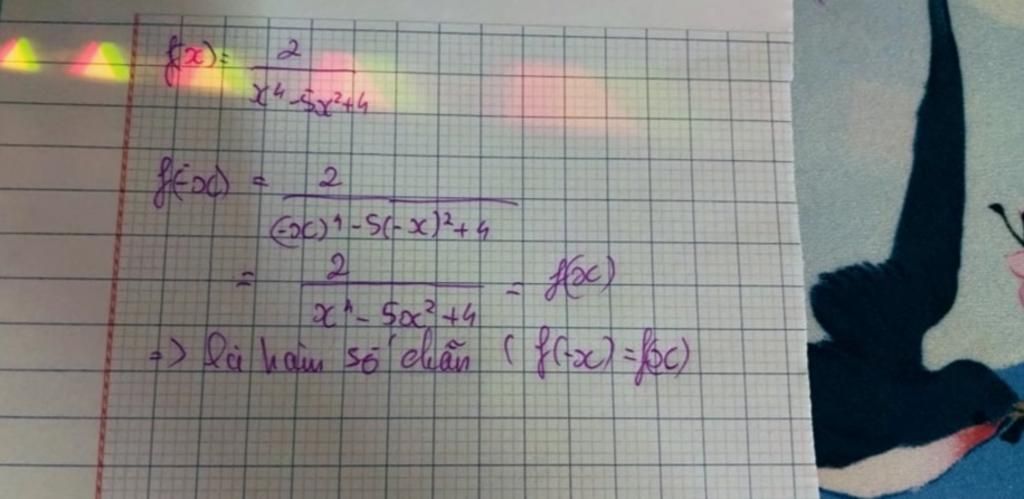 f(x) = 2 / (x⁴ - 5x² + 4)
f(-x) = 2 / ((-x)⁴ - 5(-x)² + 4)
= 2 / (x⁴ - 5x² + 4) = f(x)
=> Là hàm số chẵn ( f(-x) = f(x)